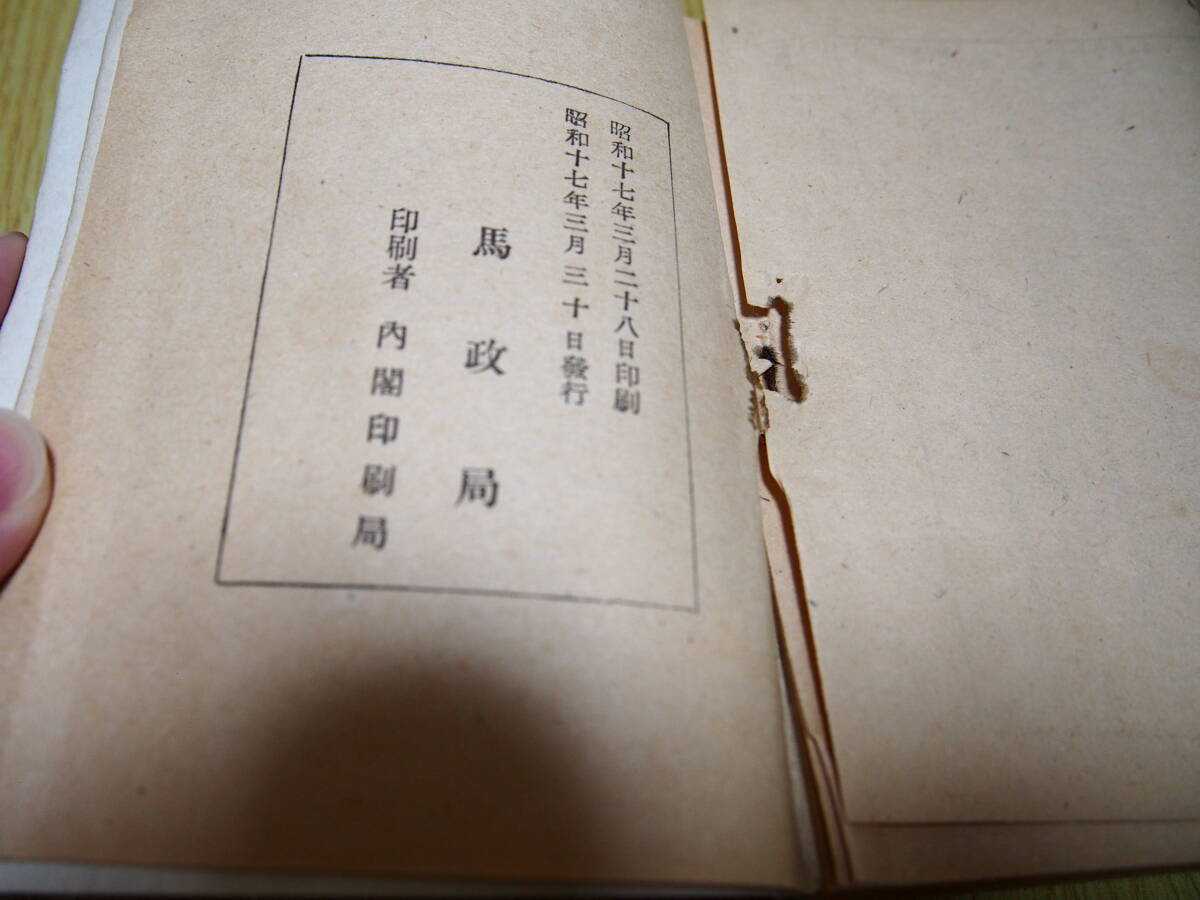 昭和十七年三月二十八日印刷
昭和十七年三月三十日發行
馬政局
印刷者 內閣印刷局